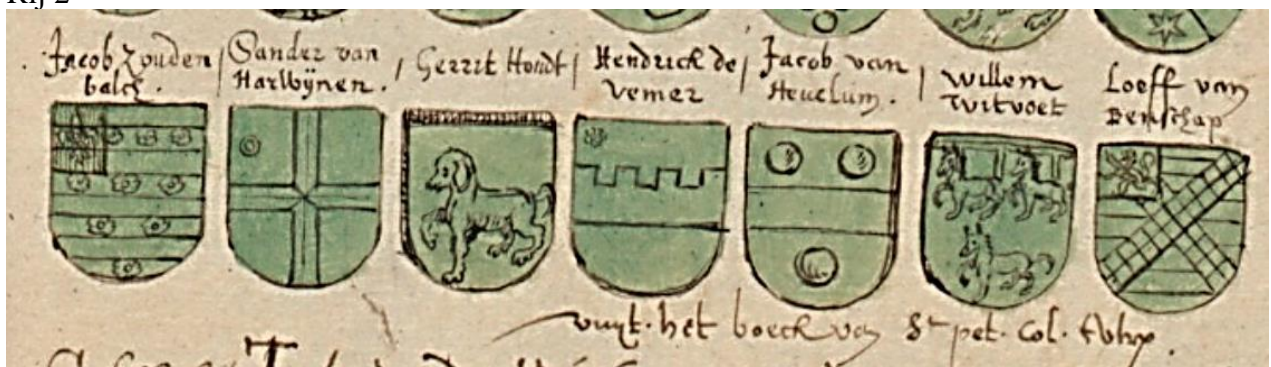 Rij 2
Jacob Zouden
balch.
Sander van
Harlwijnen.
Gerrit Hondt
Hendrick de
vemer
Jacob van
Heuelum.
Willem
Witvoet
Loeff van
Benschap
vuyt. het boeck van St pet. Col.